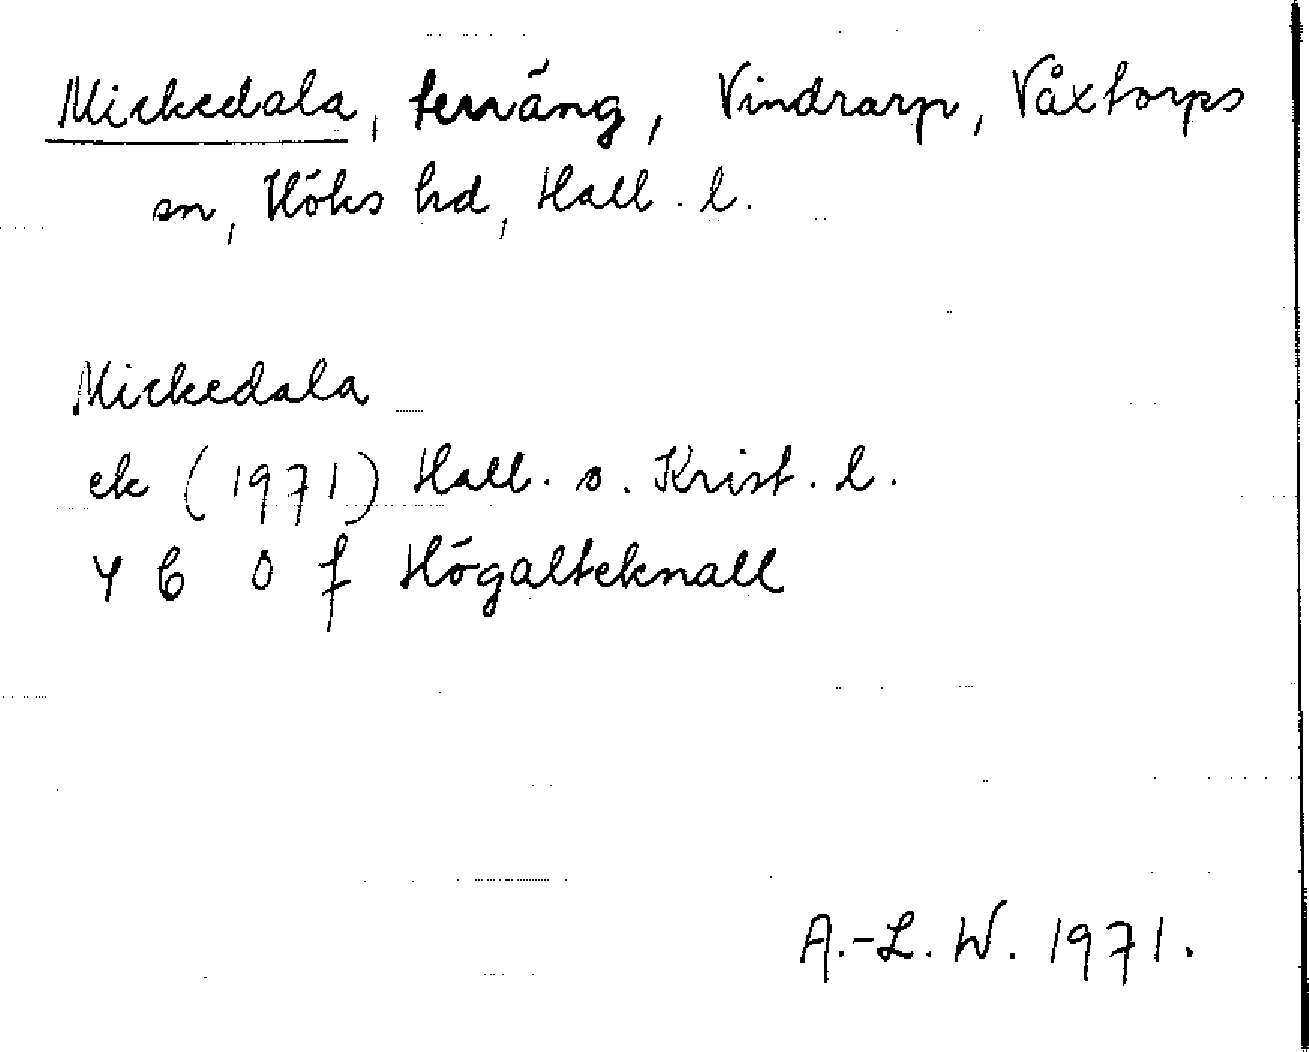 Mickedala, terräng, Vindrarp, Våxtorps
sn, Höks hd, Hall. l.
Mickedala
ek (1971) Hall. o. Krist. l.
4 C 0 f Högalteknall
A.-L. W. 1971.